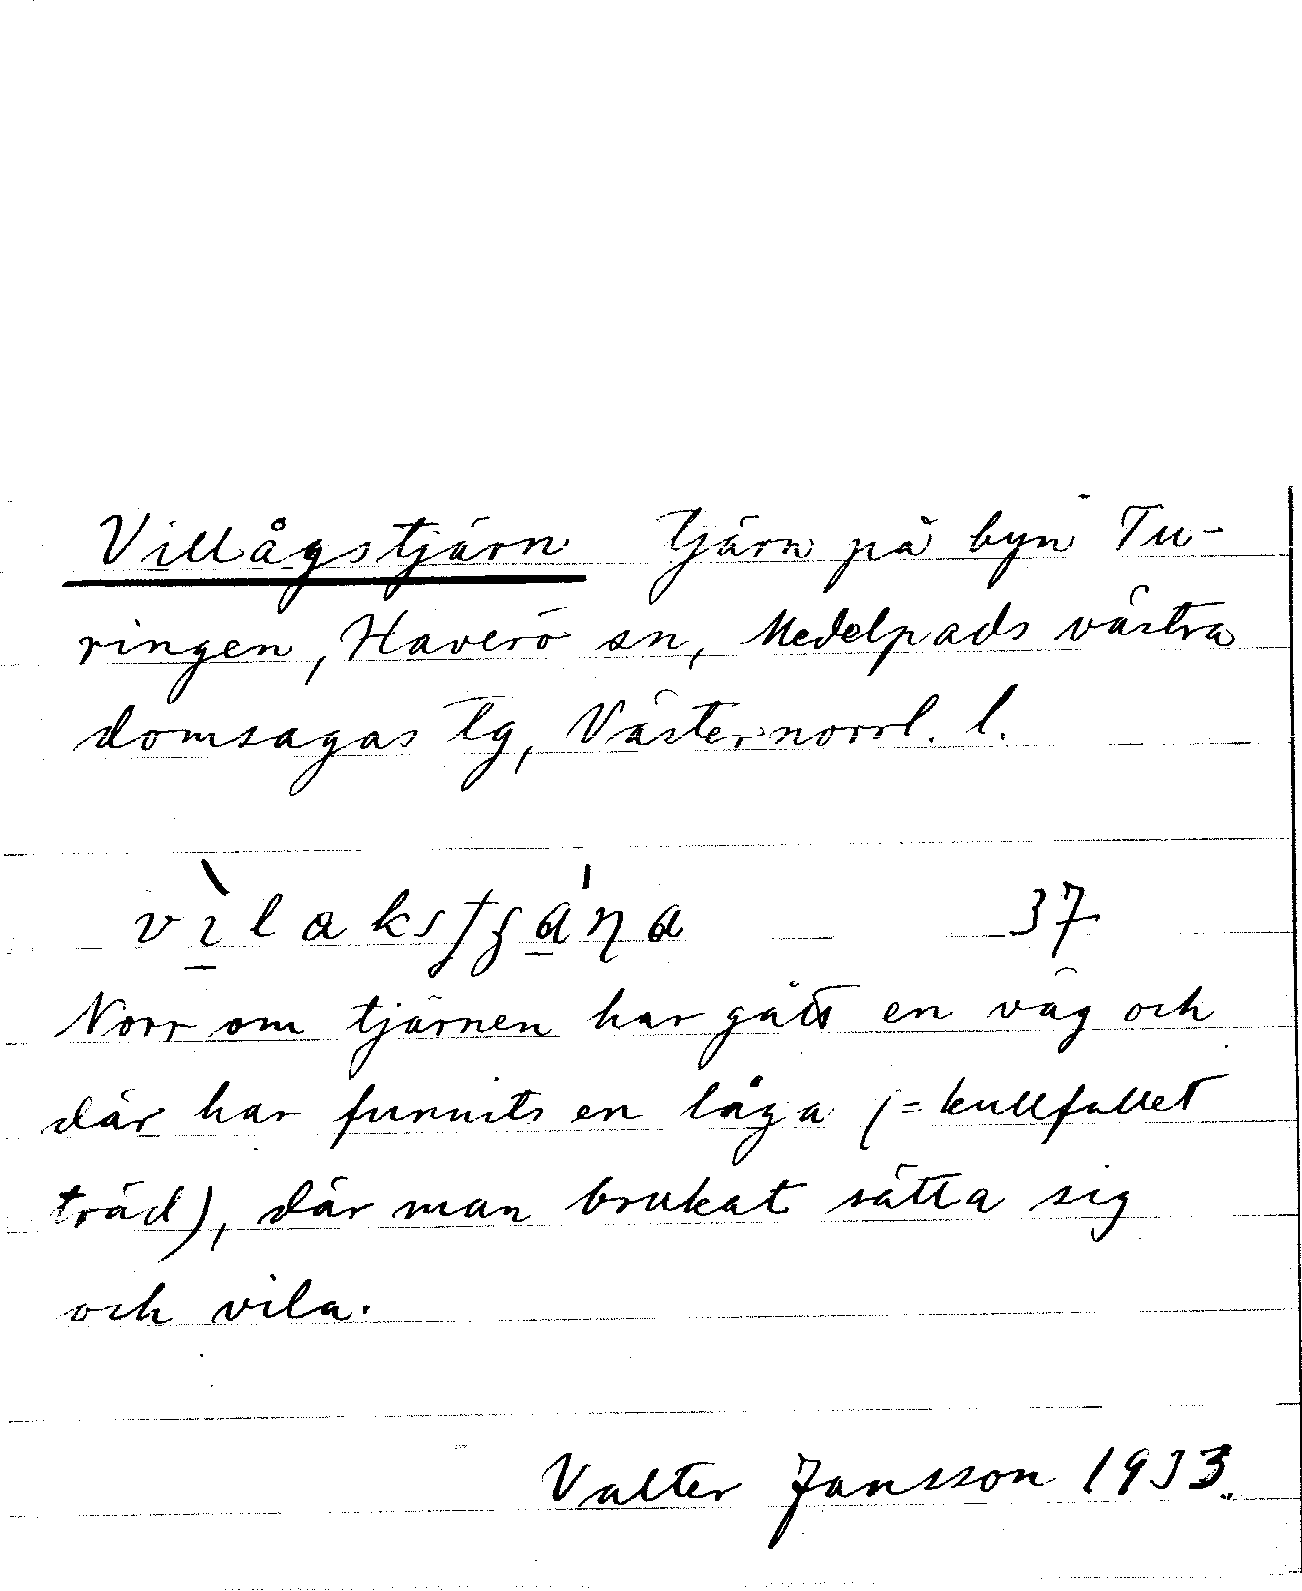 Villågstjärn Tjärn på byn Tu-
ringen, Haverö sn, Medelpads västra
domsagas tg, Västernorrl. l.
37
Norr om tjärnen har gått en väg och
där har funnits en låga (= kullfallet
träd), där man brukat sätta sig
och vila.
Valter Jansson 1933.